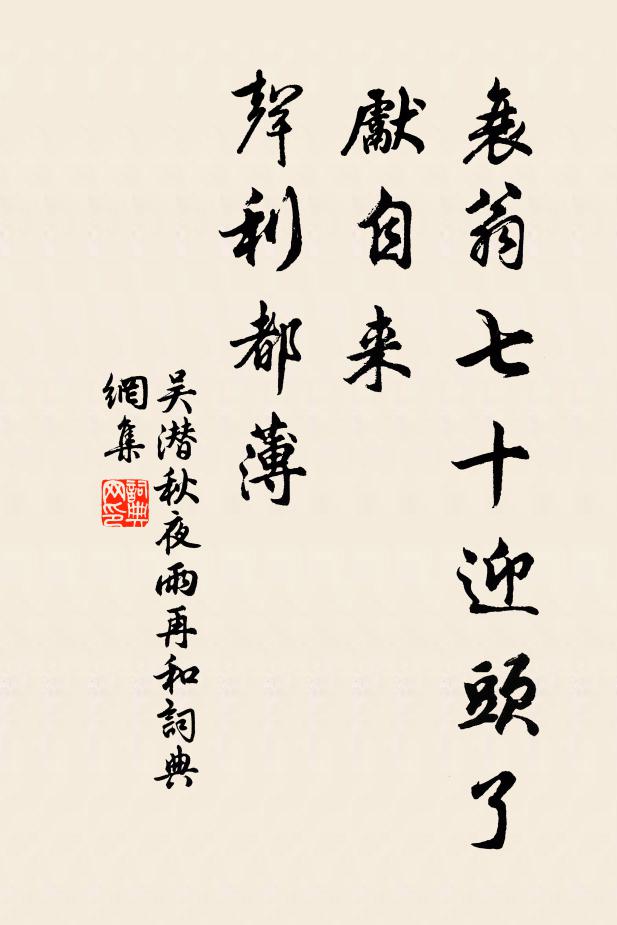 衰翁七十迎頭了
獻自来
聲利都薄
吴潜秋夜雨再和詞典
網集
詞典
网印